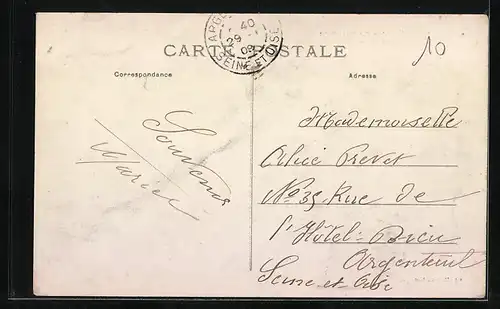 CARTE POSTALE
ARGE
40
29
09
SEINE ET OISE
10
Correspondance
Adresse
Souvenir
Marie
Mademoiselle
Alice Prevet
No 35 Rue de
l'Hôtel-Dieu
Argenteuil
Seine et Oise